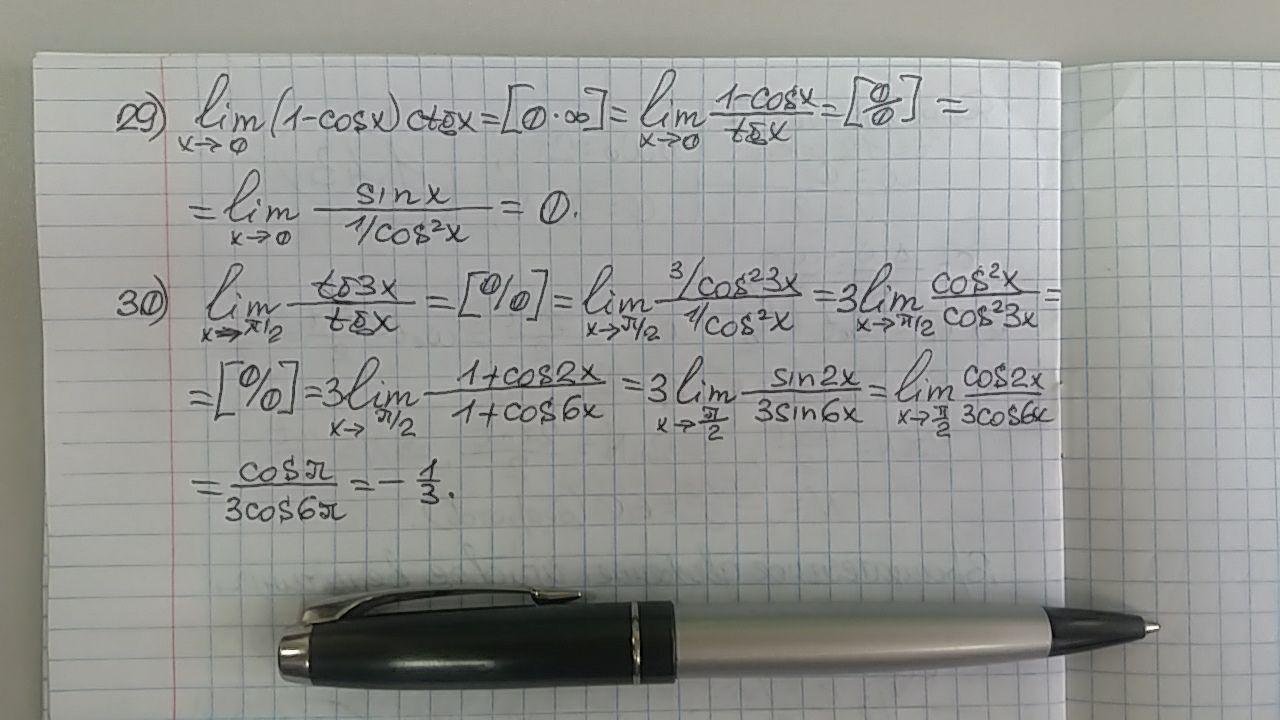 29) lim x→0 (1-cosx) ctgx = [0·∞] = lim x→0 1-cosx/tgx = [0/0] =
= lim x→0 sinx/1/cos²x = 0.
30) lim x→π/2 tg3x/tgx = [0/0] = lim x→π/2 3/cos²3x/1/cos²x = 3 lim x→π/2 cos²x/cos²3x =
= [0/0] = 3 lim x→π/2 1+cos2x/1+cos6x = 3 lim x→π/2 sin2x/3sin6x = lim x→π/2 cos2x/3cos6x
= cosπ/3cos6π = - 1/3.